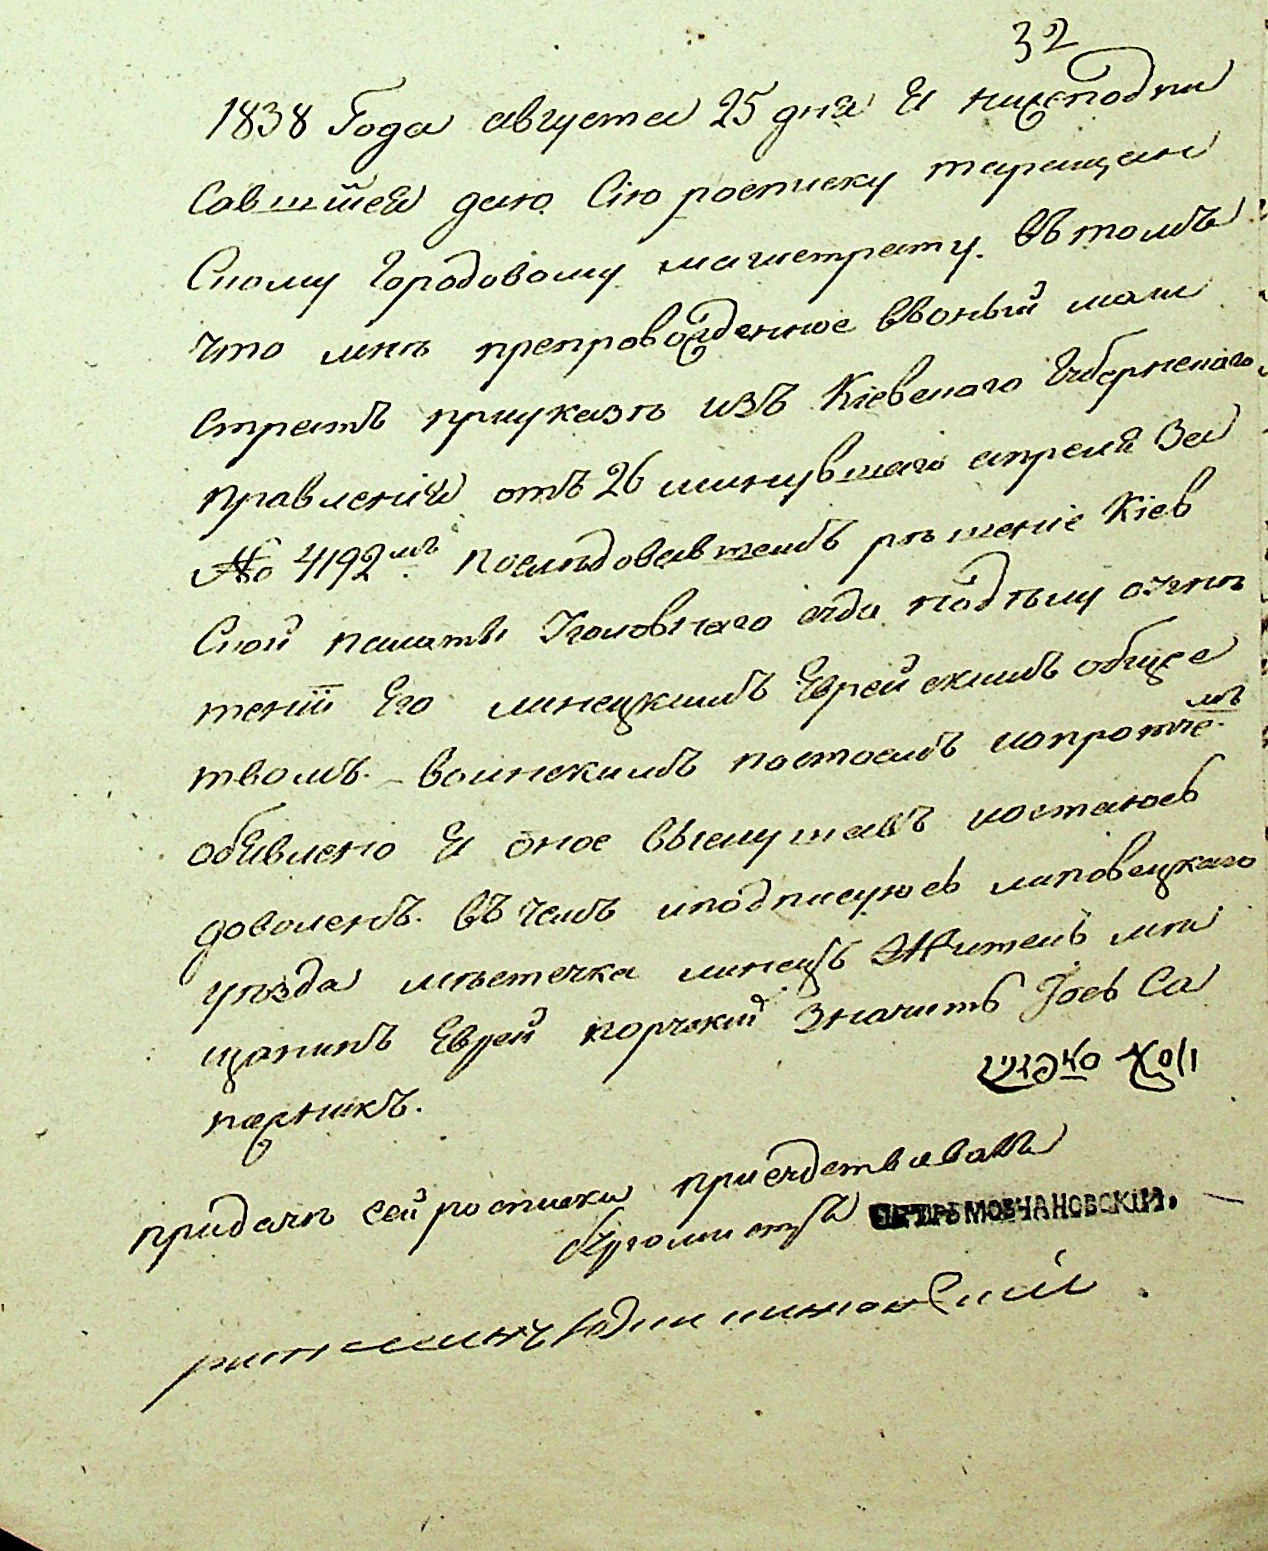 32
1838 Года августа 25 дня Я нижеподпи
савшийся даю Сію росписку таращан
Скому Городовому магистрату. Въ томъ
что мнѣ препровожденноеВвоный маги
стратъ приуказѣ изъ Кіевскаго Губернскаго
правленія отъ 26 минувшаго апреля За
№ 4192мъ последовавшемъ рѣшеніе Кіев
Ской палаты Уголовнаго суда подѣлу
теніи Его линецкимъ Еврейскимъ обще
твомъ. воинскимъ постоемъ ипротчемъ
объявлено Я оное выслушавъ иостаюсь
доволенъ. въ чемъ иподписуюсь липовецкаго
уѣзда мѣстечка линецъ Житель мѣ
щанинъ Еврей Значитъ Іось Са
перникъ.
придачѣ сей росписки присудствовалъ
Бургомистръ ПЕТРЪ МОВЧАНОВСКІЙ.